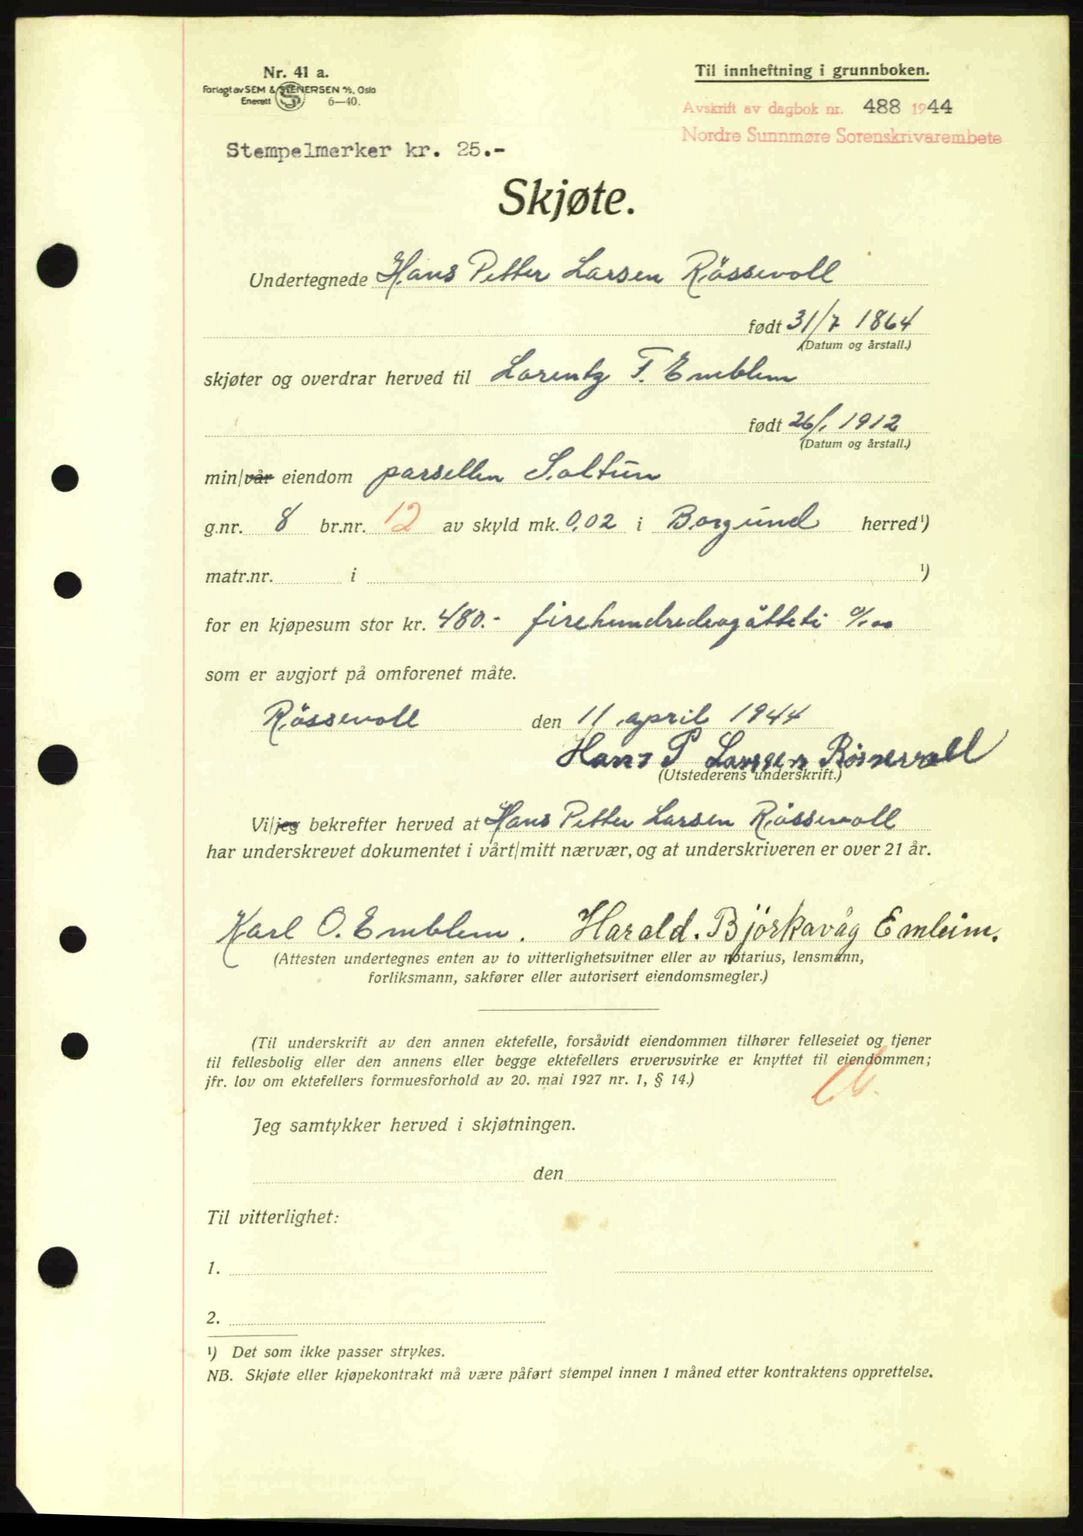 Nr. 41 a.
Forlagt av SEM & STENERSEN A/S, Oslo
Enerett 6—40.
Til innheftning i grunnboken.
Avskrift av dagbok nr. 488 1944
Nordre Sunnmøre Sorenskrivarembete
Stempelmerker kr. 25.-
Skjøte.
Undertegnede Hans Petter Larsen Røssevoll
født 31/7 1864
(Datum og årstall.)
skjøter og overdrar herved til Lorentz F. Emblem
født 26/1 1912
(Datum og årstall.)
min/vår eiendom parsellen Soltun
g.nr. 8 br.nr. 12 av skyld mk. 0,02 i Borgund herred¹)
matr.nr. i ¹)
for en kjøpesum stor kr. 480.- firehundredeogåtteti 0/00
som er avgjort på omforenet måte.
Røssevoll den 11 april 1944
Hans P Larsen Røssevoll
(Utstederens underskrift.)
Vi/jeg bekrefter herved at Hans Petter Larsen Røssevoll
har underskrevet dokumentet i vårt/mitt nærvær, og at underskriveren er over 21 år.
Karl O. Emblem. Harald. Bjørkavåg Emleim.
(Attesten undertegnes enten av to vitterlighetsvitner eller av notarius, lensmann,
forliksmann, sakfører eller autorisert eiendomsmegler.)
(Til underskrift av den annen ektefelle, forsåvidt eiendommen tilhører felleseiet og tjener
til fellesbolig eller den annens eller begge ektefellers ervervsvirke er knyttet til eiendommen;
jfr. lov om ektefellers formuesforhold av 20. mai 1927 nr. 1, § 14.)
Jeg samtykker herved i skjøtningen.
den
Til vitterlighet:
1.
2.
¹) Det som ikke passer strykes.
NB. Skjøte eller kjøpekontrakt må være påført stempel innen 1 måned etter kontraktens opprettelse.